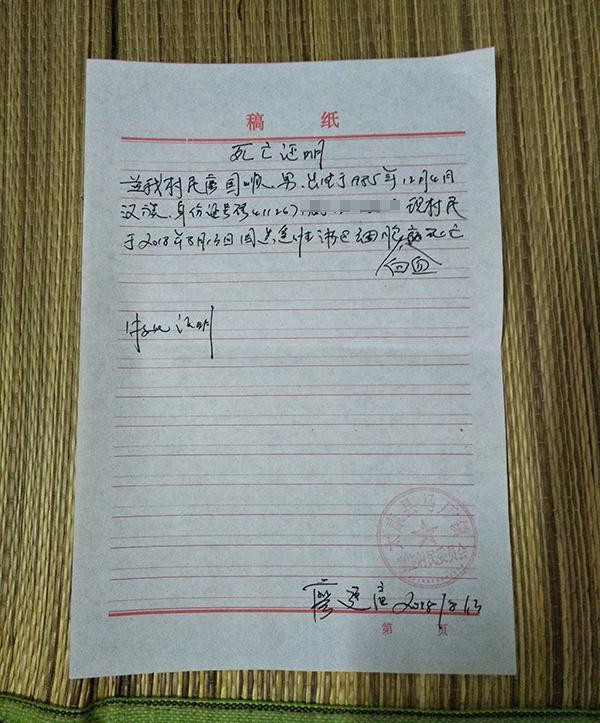 稿 纸
死亡证明
兹我村民 国 男, 出生于1985年12月4日
汉族, 身份证号码411267 现村民
于2018年8月13日因点急性淋巴细胞病死亡
白血
特此证明
太康县马厂镇
村民委员会
2018/8/13
第 页